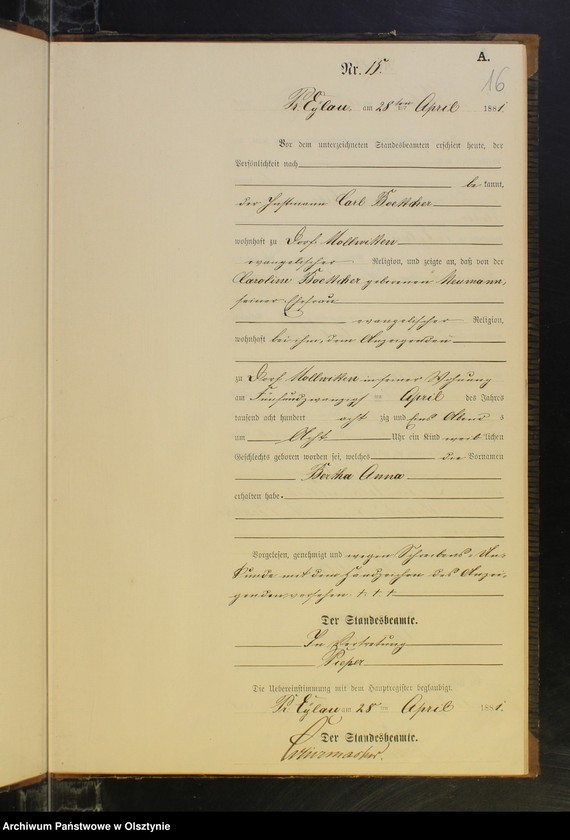 A.
Nr. 15.
16
Pr. Eylau, am 28ten April 1881.
Vor dem unterzeichneten Standesbeamten erschien heute, der
Persönlichkeit nach
be kannt,
der Instmann Carl Boettcher
wohnhaft zu Dorf Mollwitten
evangelischer Religion, und zeigte an, daß von der
Caroline Boettcher geborenen Neumann,
seiner Ehefrau
evangelischer Religion,
wohnhaft bei ihm, dem Anzeigenden
zu Dorf Mollwitten in seiner Wohnung
am Fünfundzwanzigsten April des Jahres
tausend acht hundert acht zig und Eins Abends
um Acht Uhr ein Kind weib lichen
Geschlechts geboren worden sei, welches die Vornamen
Bertha Anna
erhalten habe.
Vorgelesen, genehmigt und wegen Schreibens-Un-
kunde mit dem Handzeichen des Anzei-
genden versehen. + + +
Der Standesbeamte.
In Vertretung
Pieper
Die Uebereinstimmung mit dem Hauptregister beglaubigt.
Pr. Eylau am 28 ten April 1881.
Der Standesbeamte.
Archiwum Państwowe w Olsztynie